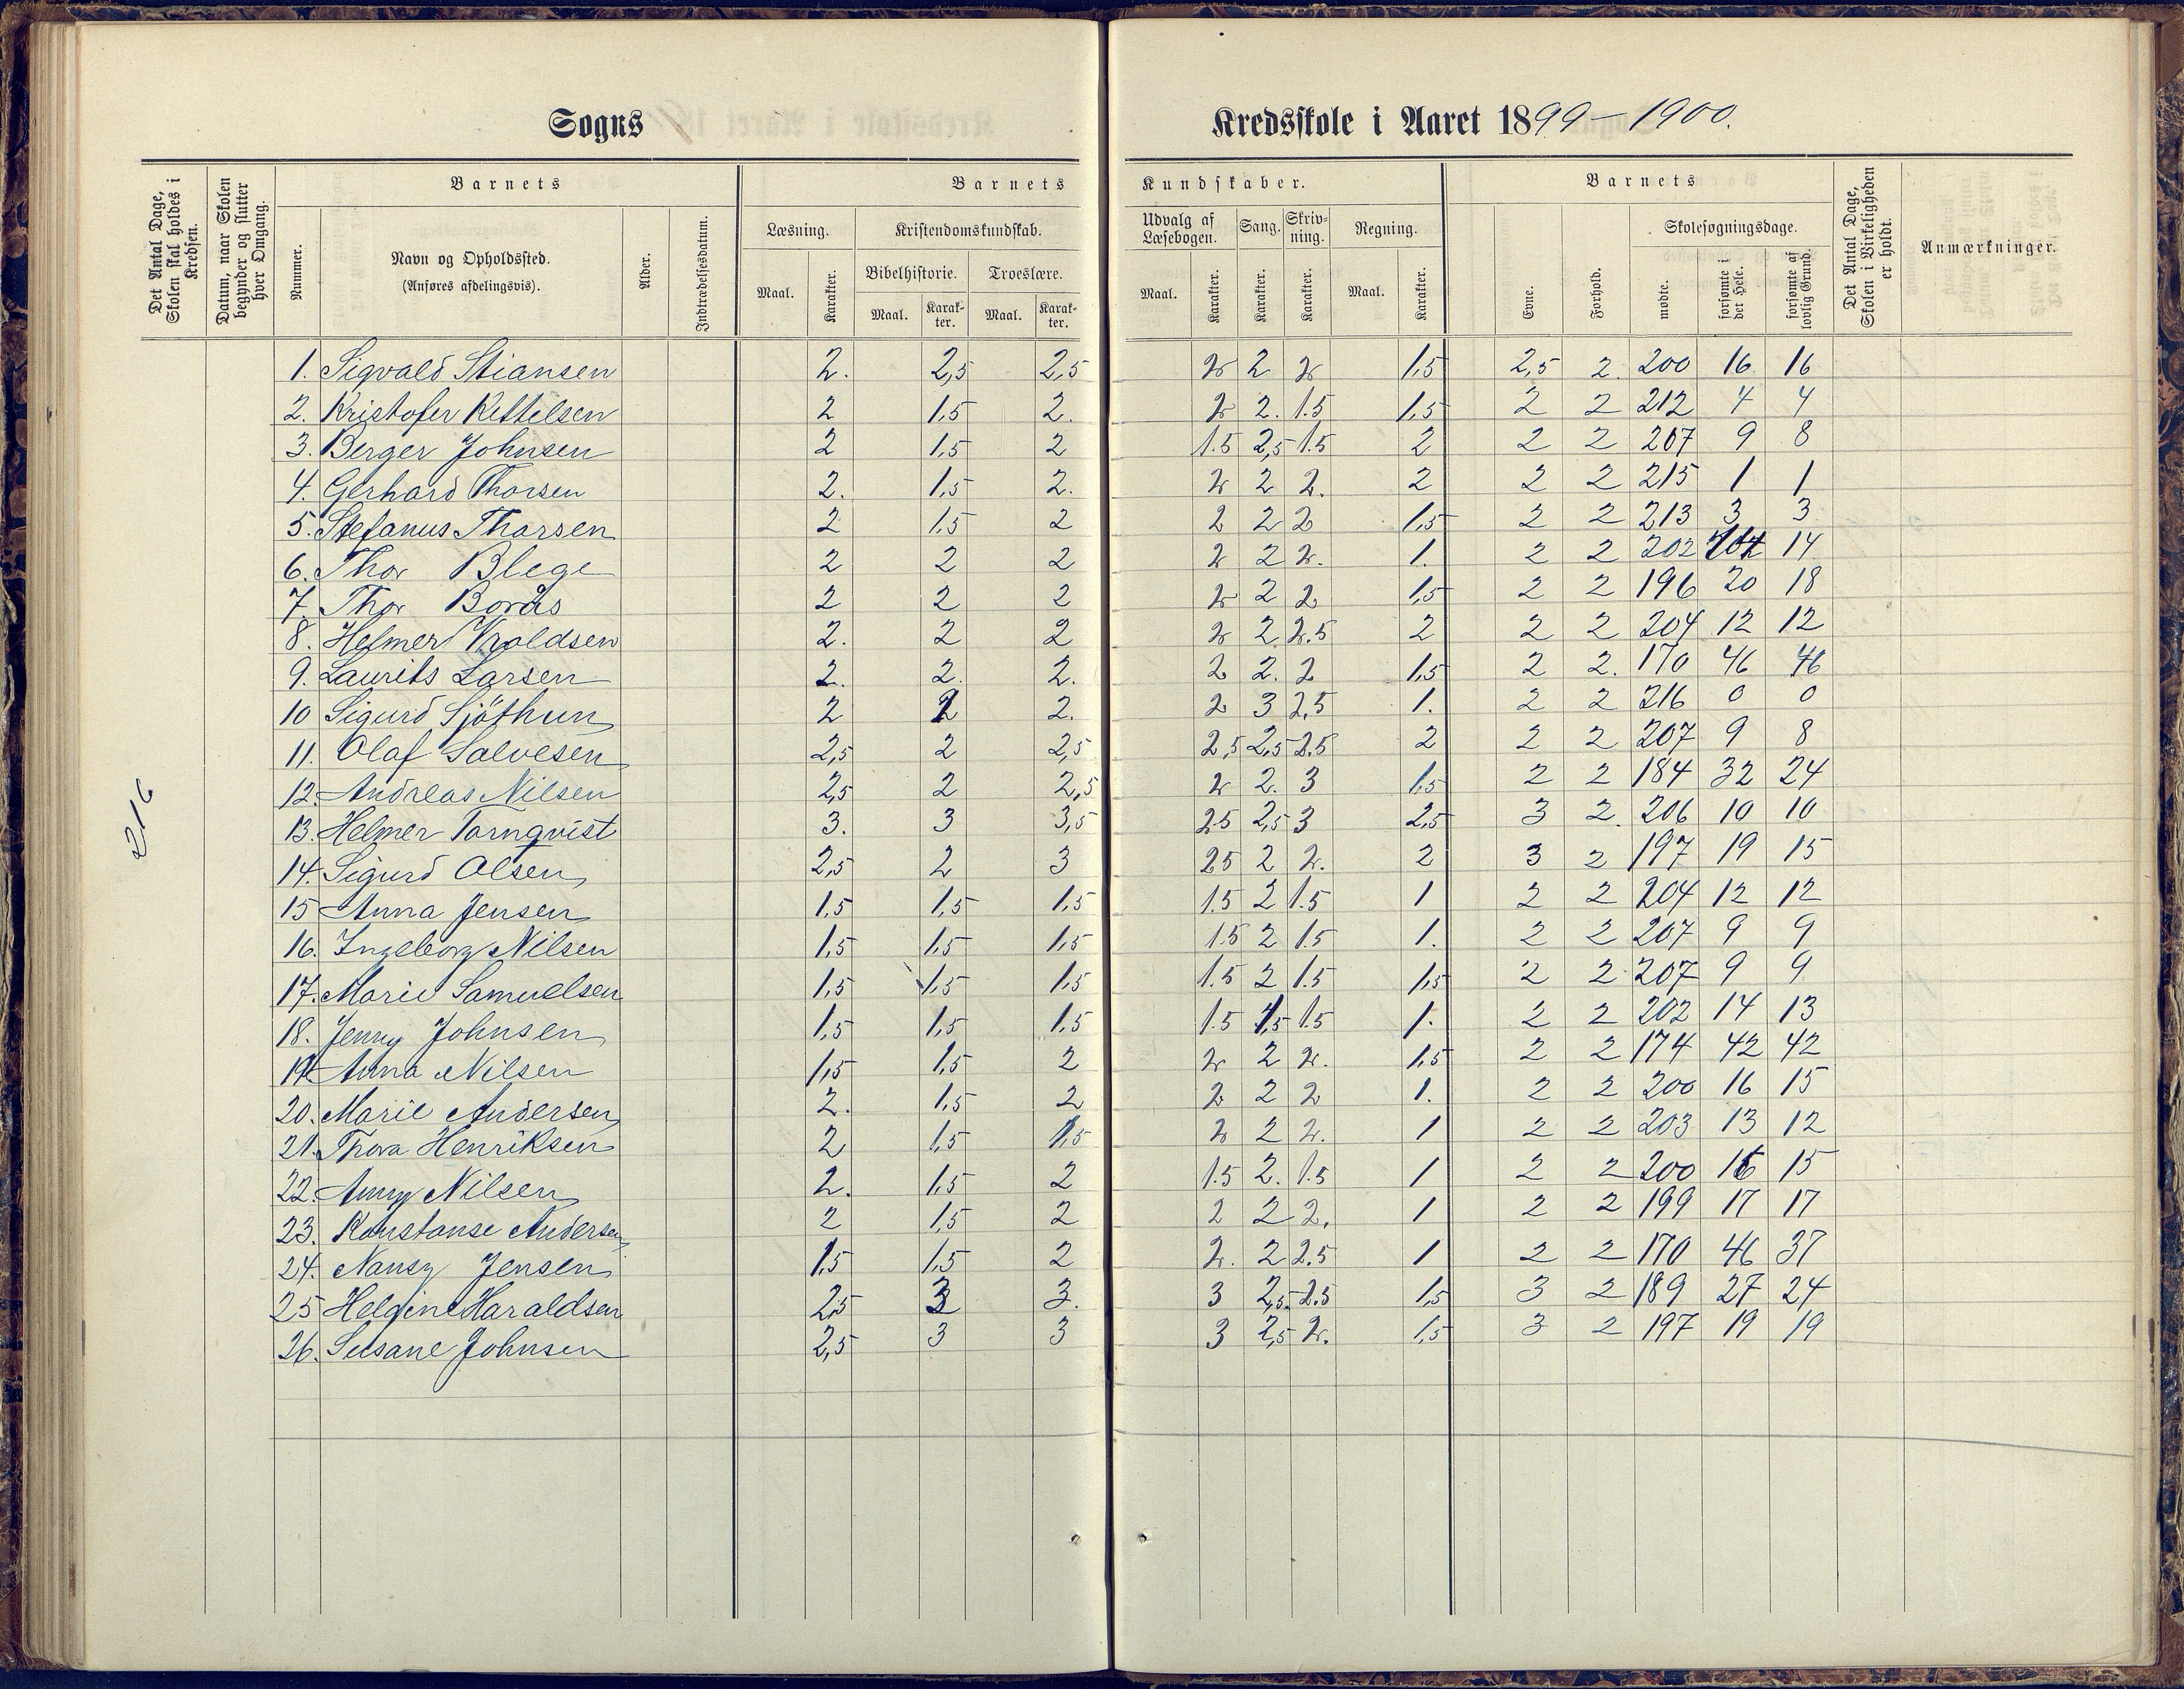 Sogns Kredsskole i Aaret 1899–1900.
Det Antal Dage, Skolen skal holdes i Kredsen.
Datum, naar Skolen begynder og slutter hver Omgang.
Barnets
Nummer.
Navn og Opholdssted.
(Anføres afdelingsvis).
Alder.
Indtrædelsesdatum.
Barnets Kundskaber.
Læsning.
Maal.
Karakter.
Kristendomskundskab.
Bibelhistorie.
Maal.
Karakter.
Troeslære.
Maal.
Karakter.
Udvalg af Læsebogen.
Maal.
Karakter.
Sang.
Karakter.
Skrivning.
Karakter.
Regning.
Maal.
Karakter.
Barnets
Evne.
Forhold.
Skolesøgningsdage.
mødte.
forsømte i det Hele.
forsømte af lovlig Grund.
Det Antal Dage, Skolen i Virkeligheden er holdt.
Anmærkninger.
216
1. Sigvald Stiansen 2. 2,5 2,5 2 2 2 1,5 2,5 2. 200 16 16
2. Kristofer Kittelsen 2 1,5 2. 2 2. 1.5 1,5 2 2 212 4 4
3. Berger Johnsen 2 1,5 2 1.5 2,5 1.5 2 2 2 207 9 8
4. Gerhard Thorsen 2. 1,5 2. 2 2 2. 2 2 2 215 1 1
5. Stefanus Thorsen 2 1,5 2 2 2 2 1,5 2 2 213 3 3
6. Thor Blege 2 2 2 2 2 2. 1. 2 2 202 14 14
7. Thor Borås 2 2 2 2 2 2 1,5 2 2 196 20 18
8. Helmer Vroldsen 2. 2 2 2 2 2.5 2 2 2 204 12 12
9. Laurits Larsen 2. 2. 2. 2 2. 2 1,5 2 2. 170 46 46
10 Sigurd Sjöthun 2 2 2. 2 3 2,5 1. 2 2 216 0 0
11. Olaf Salvesen 2,5 2 2,5 2,5 2,5 2.5 2 2 2 207 9 8
12. Andreas Nilsen 2,5 2 2,5 2 2. 3 1,5 2 2 184 32 24
13. Helmer Tornqvist 3. 3 3,5 25 2,5 3 2,5 3 2. 206 10 10
14. Sigurd Olsen 2,5 2 3 25 2 2. 2 3 2 197 19 15
15 Anna Jensen 1,5 1,5 1,5 1.5 2 1.5 1 2 2 204 12 12
16. Ingeborg Nilsen 1,5 1,5 1,5 1.5 2 1.5 1. 2 2 207 9 9
17. Marie Samuelsen 1,5 1,5 1,5 1.5 2 1.5 1,5 2 2 207 9 9
18. Jenny Johnsen 1,5 1,5 1,5 1.5 1,5 1.5 1. 2 2 202 14 13
19. Anna Nilsen 1,5 1,5 2 2 2 2. 1,5 2 2 174 42 42
20. Marie Andersen 2. 1,5 2 2 2 2 1. 2 2 200 16 15
21. Thora Henriksen 2 1,5 1,5 2 2 2. 1 2 2 203 13 12
22. Anny Nilsen 2. 1,5 2 1.5 2. 1.5 1 2 2 200 16 15
23. Konstanse Andersen 2 1,5 2 2 2 2. 1 2 2 199 17 17
24. Nansy Jensen 1,5 1,5 2 2. 2 2.5 1 2 2 170 46 37
25 Helgine Haraldsen 2,5 3 3. 3 2,5 2.5 1,5 3 2 189 27 24
26. Susane Johnsen 2,5 3 3 3 2,5 2. 1,5 3 2 197 19 19